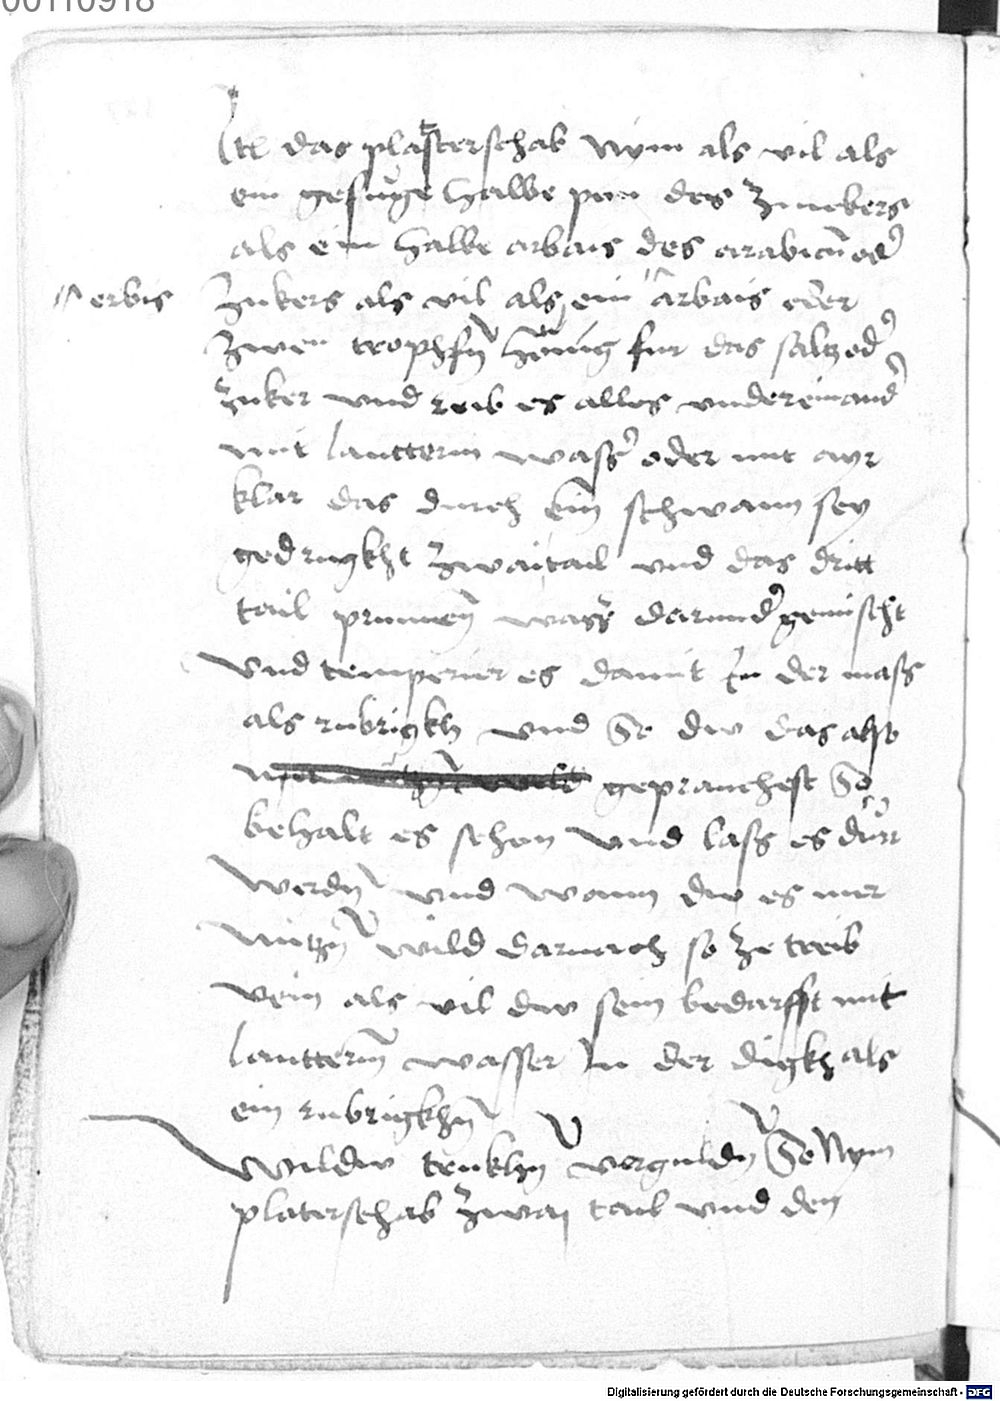 00110918
Itē das plasterschab Nym als vil als
ein gefuge halbe pon des Zinobers
als ein halbe arbais des arabicū od᷑
erbis
Zukers als vil als ein arbais oder
zwen trophfn̄ honig fur das saltz od᷑
Zuker vnd reib es alles vndereinand᷑
mit lautterm wass᷑ oder mit ayr
klar das durch ein schwamm sey
gedrugkht zwaitail vnd das dritt
tail prunnen̄ wass᷑ darund᷑ gemischt
vnd temperier es damit In der mass
als rubrigkh vnd So dw das also
geprauchest So
behalt es schon vnd lass es durr
werdn̄ vnd wann dw es mer
nutzn̄ wild darnach so ze treib
sein als vil dw sein bedarfft mit
lautterm̄ wasser In der digkh als
ein rubrigkhn̄
Wildw trukhn̄ verguldn̄ So Nym
platerschab zway tail vnd den
Digitalisierung gefördert durch die Deutsche Forschungsgemeinschaft - DFG